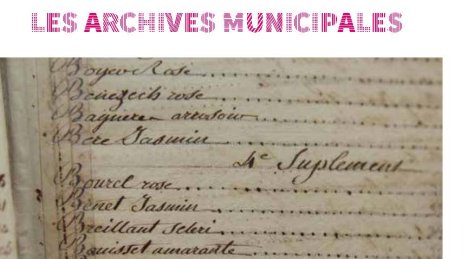 LES ARCHIVES MUNICIPALES
Boyer Rose
Benezech rose
Baguere arrosoir
Bere Jasmin
4e Suplement
Bourel rose
Benet Jasmin
Breillant seleri
Bouisset amarante